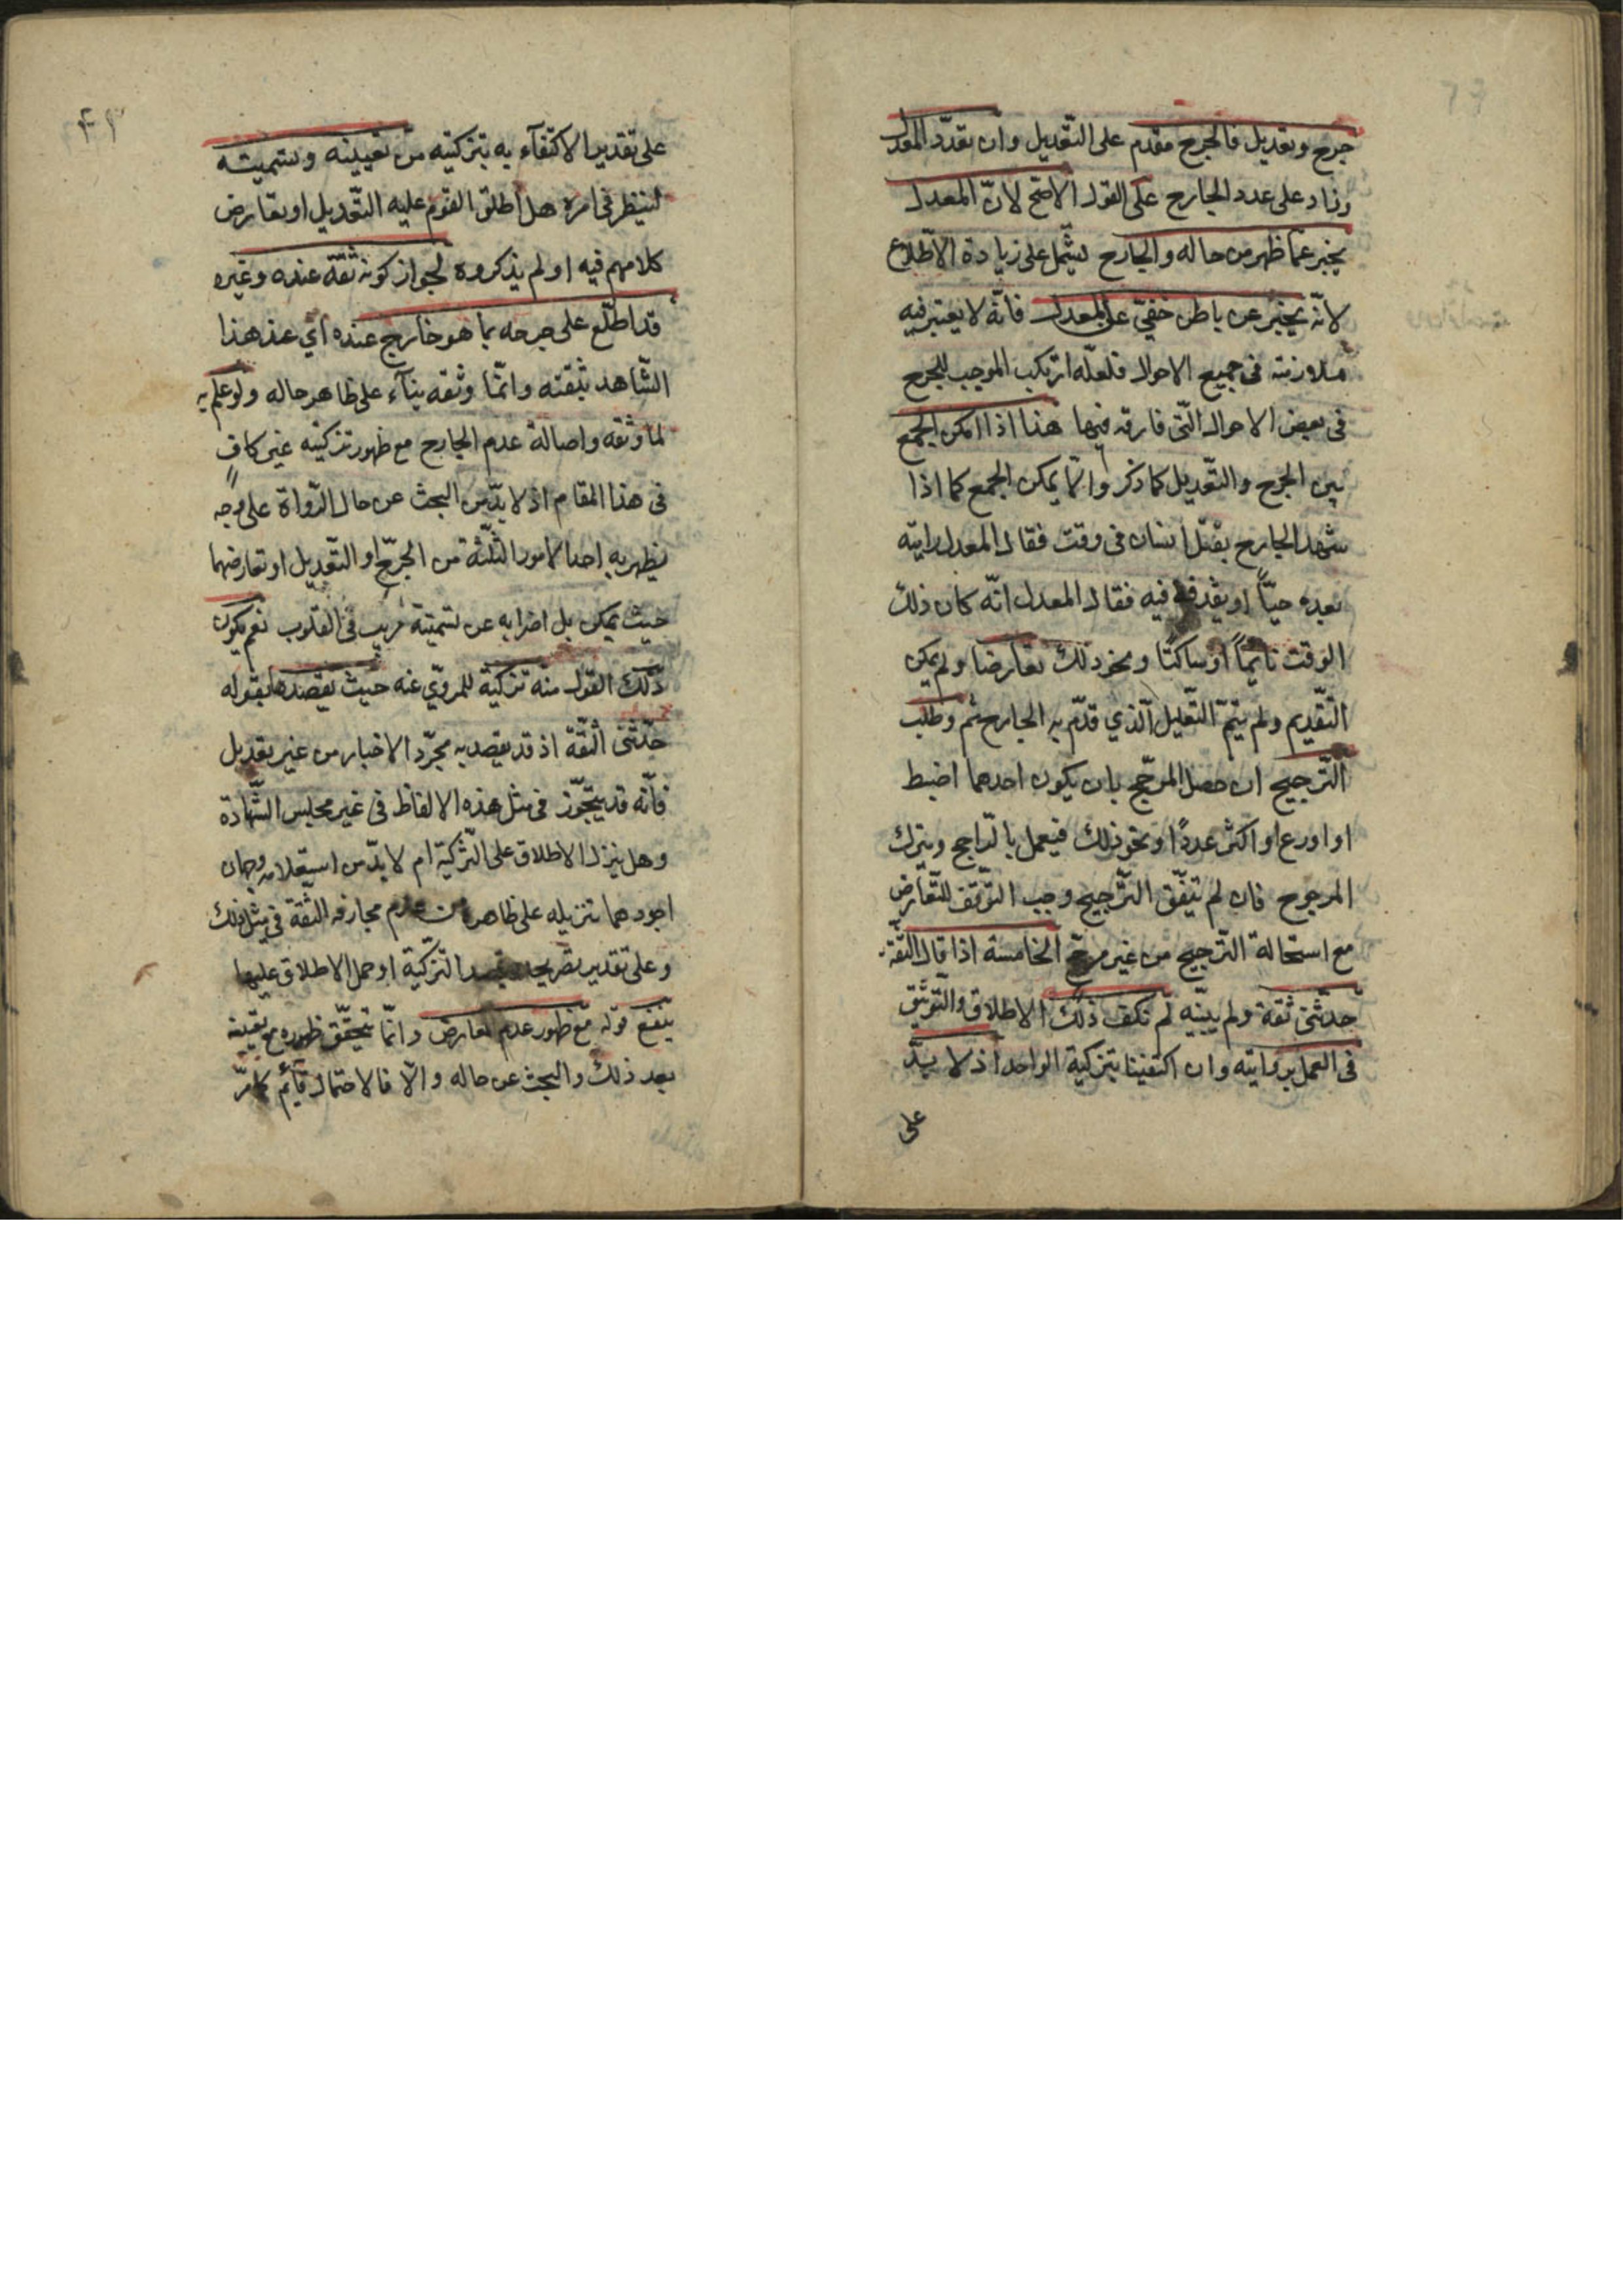 جرح وتعديل فالجرح مقدم على التّعديل وان تعدّد المعدل
وزاد على عدد الجارح على القول الاصح لانّ المعدل
يخبر عما ظهر من حاله والجارح يشتمل على زيادة الاطّلاع
لانّه يخبر عن باطن خفيّ على المعدل فانّه لا يعتبر فيه
ملازمته فى جميع الاحوال فلعلّه ارتكب الموجب للجرح
فى بعض الاحوال الّتى فارقه فيها هذا اذا امكن الجمع
بين الجرح والتّعديل كما ذكر والّا يمكن الجمع كما اذا
شهد الجارح بقتل انسان فى وقت فقال المعدل رايته
بعده حيّاً او يقذفه فيه فقال المعدل انّه كان ذلك
الوقت نائماً او ساكتاً ونحو ذلك تعارضا ولم يمكن
التّقديم ولم يتمّ التّعليل الّذي قدّم به الجارح ثم وطلب
التّرجيح ان حصل المرجّح بان يكون احدهما اضبط
او اورع او اكثر عدداً او نحو ذلك فيعمل بالرّاجح ويترك
المرجوح فان لم يتفّق التّرجيح وجب التّوقّف للتّعارض
مع استحالة التّرجيح من غير مرجّح الخامسة اذا قال الثّقة
حدّثنى ثقة ولم يبيّنه لم يكف ذلك الاطلاق والتّوثيق
فى العمل بروايته وان اكتفينا بتزكية الواحد اذ لا بدّ
على
٤٢
على تقدير الاكتفآء به بتزكيته من تعيينه وتسميته
لينظر فى امره هل اطلق القوم عليه التّعديل او تعارض
كلامهم فيه او لم يذكروه لجواز كونه ثقة عنده وغيره
قد اطّلع على جرحه بما هو خارج عنده اي عند هذا
الشّاهد بثقته وانّما وثقه بنآء على ظاهر حاله ولو علم به
لما وثقه واصالة عدم الجارح مع ظهور تزكيته غير كافٍ
فى هذا المقام اذ لا بدّ من البحث عن حال الرّواة على وجه
يظهر به احد الامور الثّلثة من الجرح او التّعديل او تعارضهما
حيث يمكن بل اضرابه عن تسميته مريب فى القلوب نعم يكون
ذلك القول منه تزكية للمرويّ عنه حيث يقصدها بقوله
حدّثنى الثّقة اذ قد يقصد به مجرّد الاخبار من غير تعديل
فانّه قد يتجّوز فى مثل هذه الالفاظ فى غير مجلس الشّهادة
وهل ينزل الاطلاق على التّزكية ام لا بدّ من استعلامه وجهان
اجودهما تنزيله على ظاهره من عدم مجازفه الثّقة فى مثل ذلك
وعلى تقدير تصريحه بقصد التّزكية او حمل الاطلاق عليها
ينفع قوله مع ظهور عدم المعارض وانّما يتحقّق ظهوره مع تعيينه
بعد ذلك والبحث عن حاله والّا فالاحتمال قائم كما مرّ